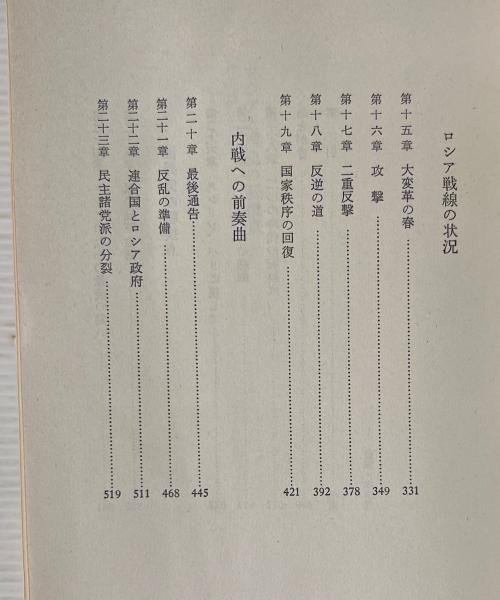 ロシア戦線の状況
第十五章 大変革の春……331
第十六章 攻撃……349
第十七章 二重反撃……378
第十八章 反逆の道……392
第十九章 国家秩序の回復……421
内戦への前奏曲
第二十章 最後通告……445
第二十一章 反乱の準備……468
第二十二章 連合国とロシア政府……511
第二十三章 民主諸党派の分裂……519